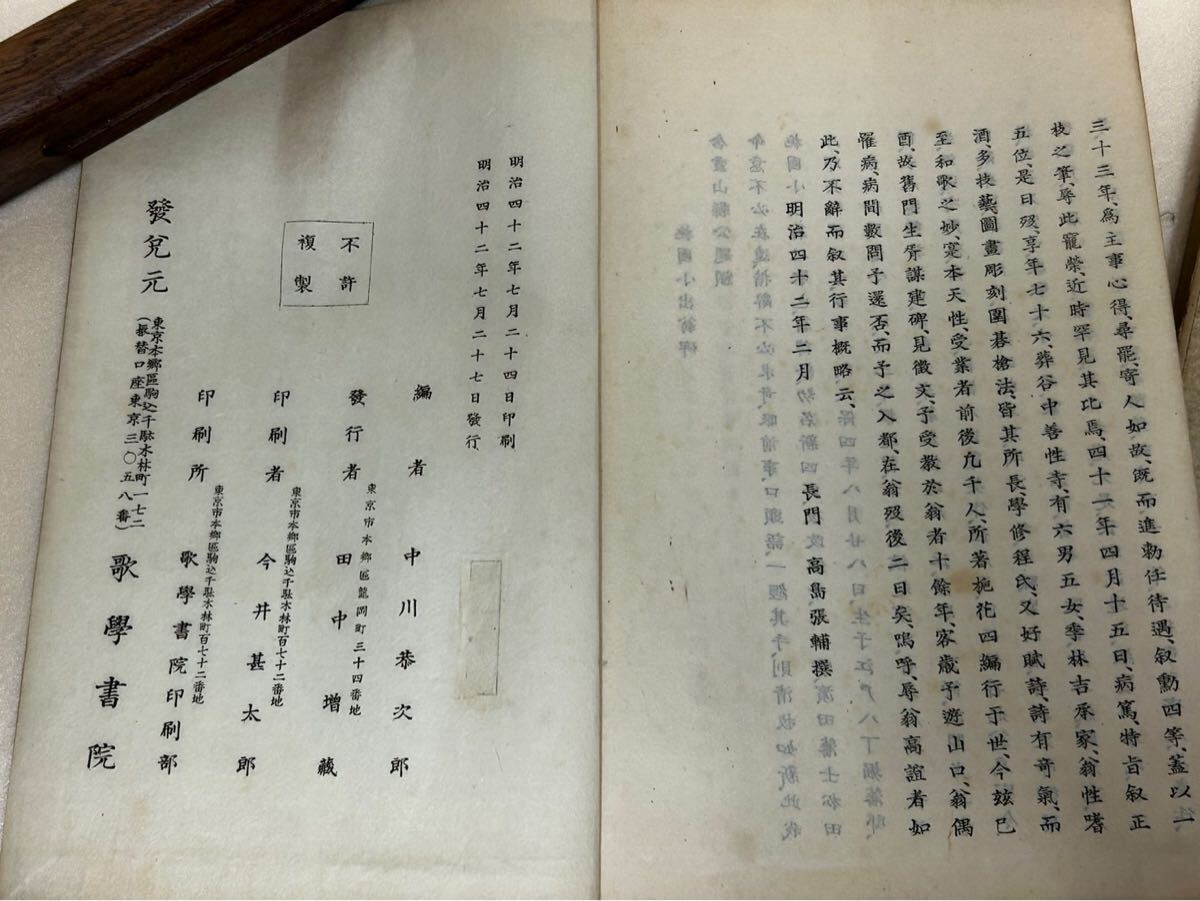 三十三年、爲主事心得、尋罷、寄人如故、既而進勅任待遇、叙勳四等、蓋以一
枝之筆、辱此寵榮、近時罕見其比焉、四十一年四月十五日、病篤、特旨叙正
五位、是日歿、享年七十六、葬谷中善性寺、有六男五女、季林吉承家、翁性嗜
酒、多技藝、圖畫彫刻圍碁槍法、皆其所長、學修程氏、又好賦詩、詩有奇氣、而
至和歌之妙、寔本天性、受業者前後凢千人、所著梔花四編行于世、今玆己
酉、故舊門生胥謀建碑、見徵文、予受教於翁者十餘年、客歲予遊山口、翁偶
罹病、病間數問予還否、而予之入都、在翁歿後二日矣、嗚呼、辱翁高誼者如
此、乃不辭而叙其行事概略云、
明治四十二年二月
長門 高島張輔撰
明治四十二年七月二十四日印刷
明治四十二年七月二十七日發行
不許
複製
編者 中川恭次郎
東京市本郷區龍岡町三十四番地
發行者 田中增藏
東京市本郷區駒込千駄木林町百七十二番地
印刷者 今井甚太郎
東京市本郷區駒込千駄木林町百七十二番地
印刷所 歌學書院印刷部
東京本郷區駒込千駄木林町一七二
(振替口座東京三〇五八番)
發兌元 歌學書院